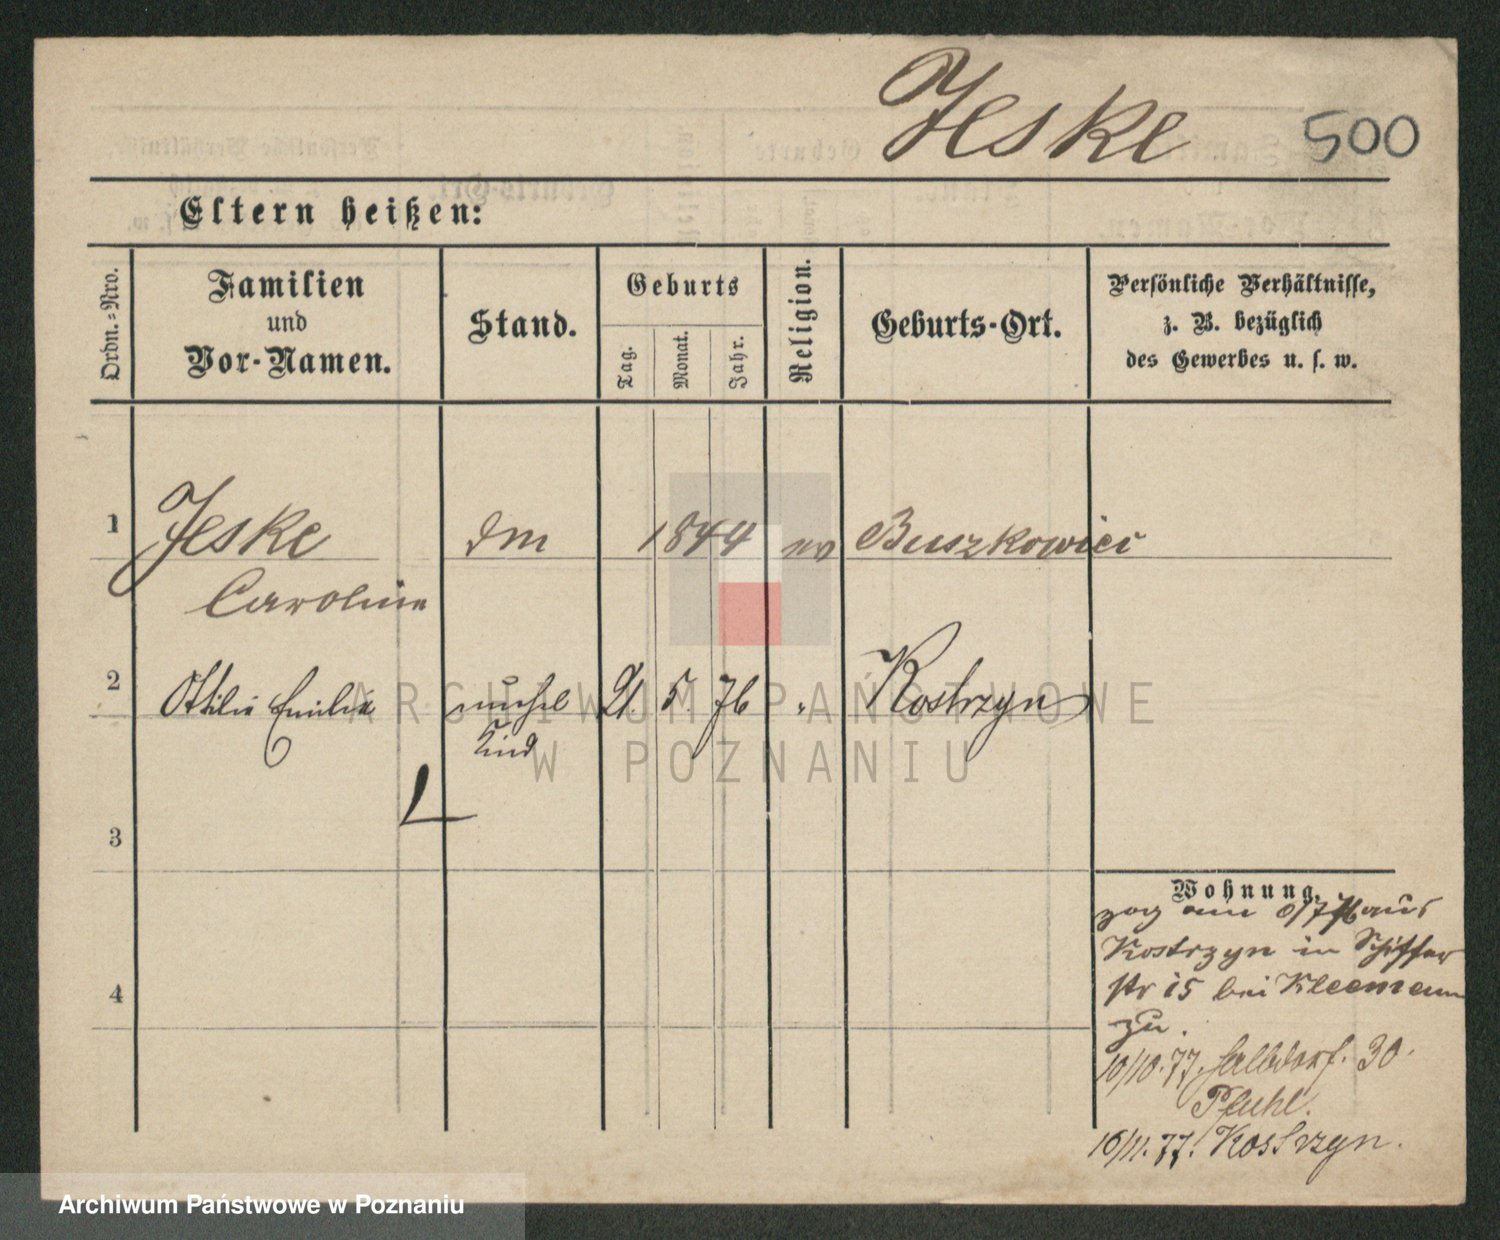 Jeske 500
Eltern heißen:
Ordn.=Nro. Familien und Vor-Namen. Stand. Geburts Tag. Monat. Jahr. Religion. Geburts-Ort. Persönliche Verhältnisse, z. B. bezüglich des Gewerbes u. s. w.
1 Jeske 1844 ev Buszkowiec
Caroline
2 Ottilie Emilie unehel 21. 5. 76 " Kostrzyn
Kind
3
4
Wohnung.
zog am 8/7 76 aus
Kostrzyn in Schiffer
str 15 bei Kleemann
zu.
10/10. 77. Halbdorf. 30.
Pfuhl.
16/11. 77. Kostrzyn.
ARCHIWUM PAŃSTWOWE
W POZNANIU
Archiwum Państwowe w Poznaniu